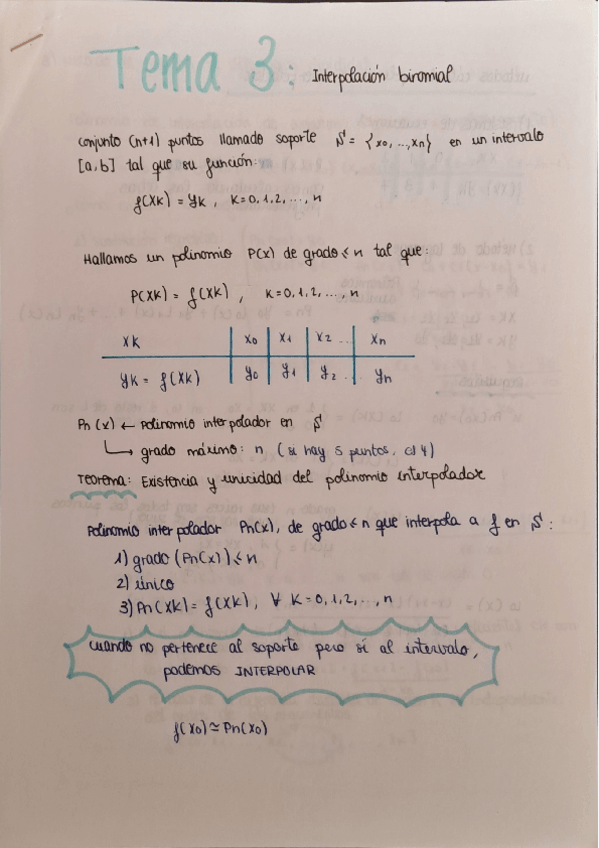 Tema 3: Interpolación binomial
Conjunto (n+1) puntos llamado soporte S = {x0, ..., xn} en un intervalo
[a,b] tal que su función:
f(xk) = yk, k=0,1,2,...,n
Hallamos un polinomio P(x) de grado ≤ n tal que:
P(xk) = f(xk), k=0,1,2,...,n
xk | x0 | x1 | x2 ... | xn
yk = f(xk) | y0 | y1 | y2 ... | yn
Pn(x) ← Polinomio interpolador en S
↳ grado máximo: n (si hay 5 puntos, el 4)
Teorema: Existencia y unicidad del polinomio interpolador
Polinomio interpolador Pn(x), de grado ≤ n que interpola a f en S:
1) grado (Pn(x)) ≤ n
2) único
3) Pn(xk) = f(xk), ∀ k=0,1,2,...,n
cuando no pertenece al soporte pero sí al intervalo,
podemos INTERPOLAR
f(x0) ≃ Pn(x0)